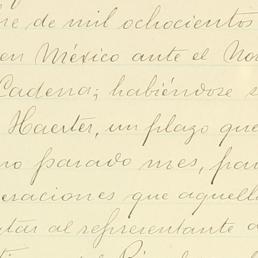 re de mil ochocientos
en México ante el No
Cadena; habiéndose s
Haerter, un plazo que
no pasado mes, pa
eraciones que aquell
tar al representante d